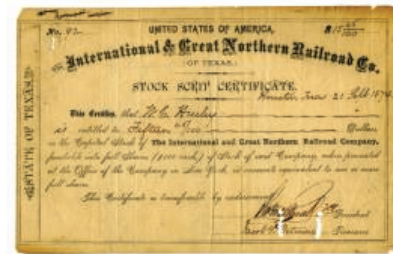 No. 92
UNITED STATES OF AMERICA,
$15 65/100
International & Great Northern Railroad Co.
(OF TEXAS.)
STOCK SCRIP CERTIFICATE.
Houston, Texas 21 Feb. 1874
This Certifies that W.C.
is entitled to Fifteen 65/100 Dollars
in the Capital Stock of The International and Great Northern Railroad Company,
fundable into full Shares ($100 each) of Stock of said Company, when presented
at the Office of the Company in New York in amounts equivalent to one or more
full shares.
This Certificate is transferable by endorsement.
President
Treasurer
STATE OF TEXAS.